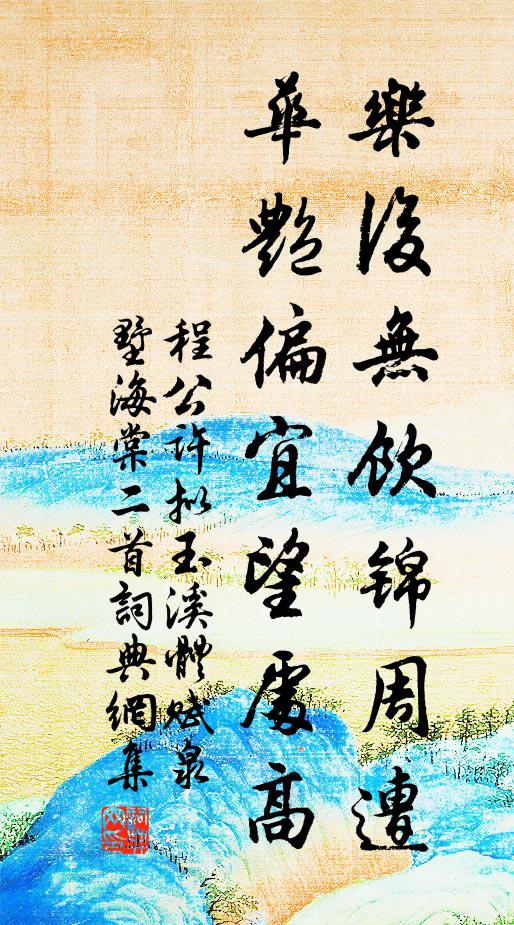 樂復無飲錦周遭
華艷偏宜望處高
程公許拟玉溪體賦泉
墅海棠二首詞典網集